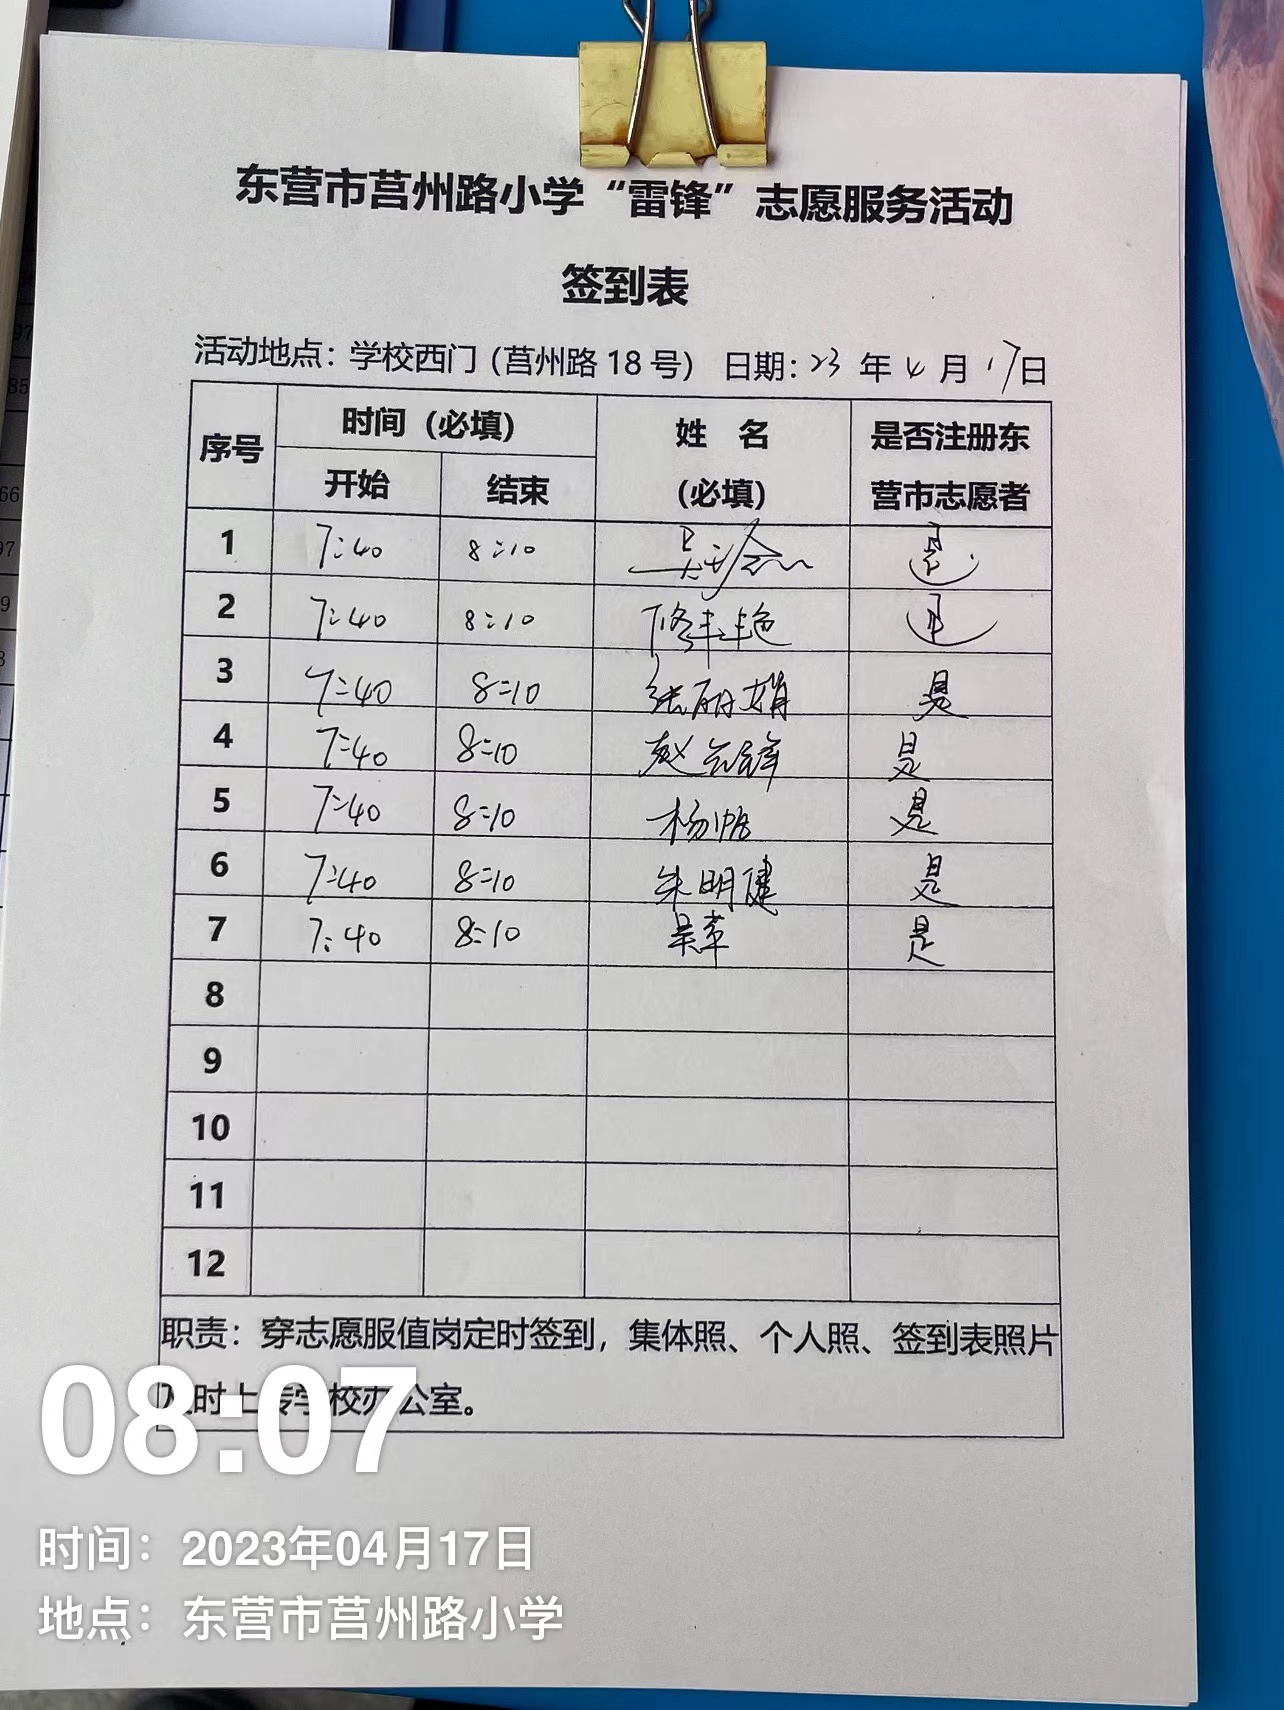 东营市莒州路小学“雷锋”志愿服务活动
签到表
活动地点：学校西门（莒州路 18 号） 日期：23 年 4 月 17日
序号 时间（必填） 姓 名 是否注册东
开始 结束 （必填） 营市志愿者
1 7:40 8:10 是
2 7:40 8:10 修丰艳 是
3 7:40 8:10 张丽娟 是
4 7:40 8:10 赵云锋 是
5 7:40 8:10 杨帆 是
6 7:40 8:10 朱明健 是
7 7:40 8:10 吴苹 是
8
9
10
11
12
职责：穿志愿服值岗定时签到，集体照、个人照、签到表照片
及时上传学校办公室。
08:07
时间：2023年04月17日
地点：东营市莒州路小学